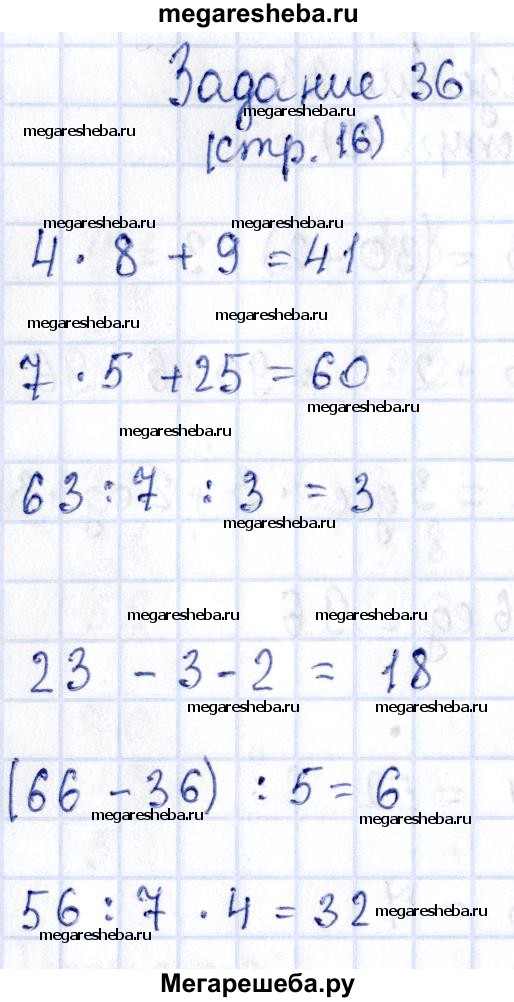 megaresheba.ru
Задание 36
megaresheba.ru
megaresheba.ru
(стр. 16)
megaresheba.ru megaresheba.ru
4 · 8 + 9 = 41
megaresheba.ru megaresheba.ru
7 · 5 + 25 = 60
megaresheba.ru
megaresheba.ru
63 : 7 : 3 = 3
megaresheba.ru
megaresheba.ru megaresheba.ru
23 - 3 - 2 = 18
megaresheba.ru megaresheba.ru
(66 - 36) : 5 = 6
megaresheba.ru megaresheba.ru
56 : 7 · 4 = 32
megaresheba.ru
megaresheba.ru
Мегарешеба.ру